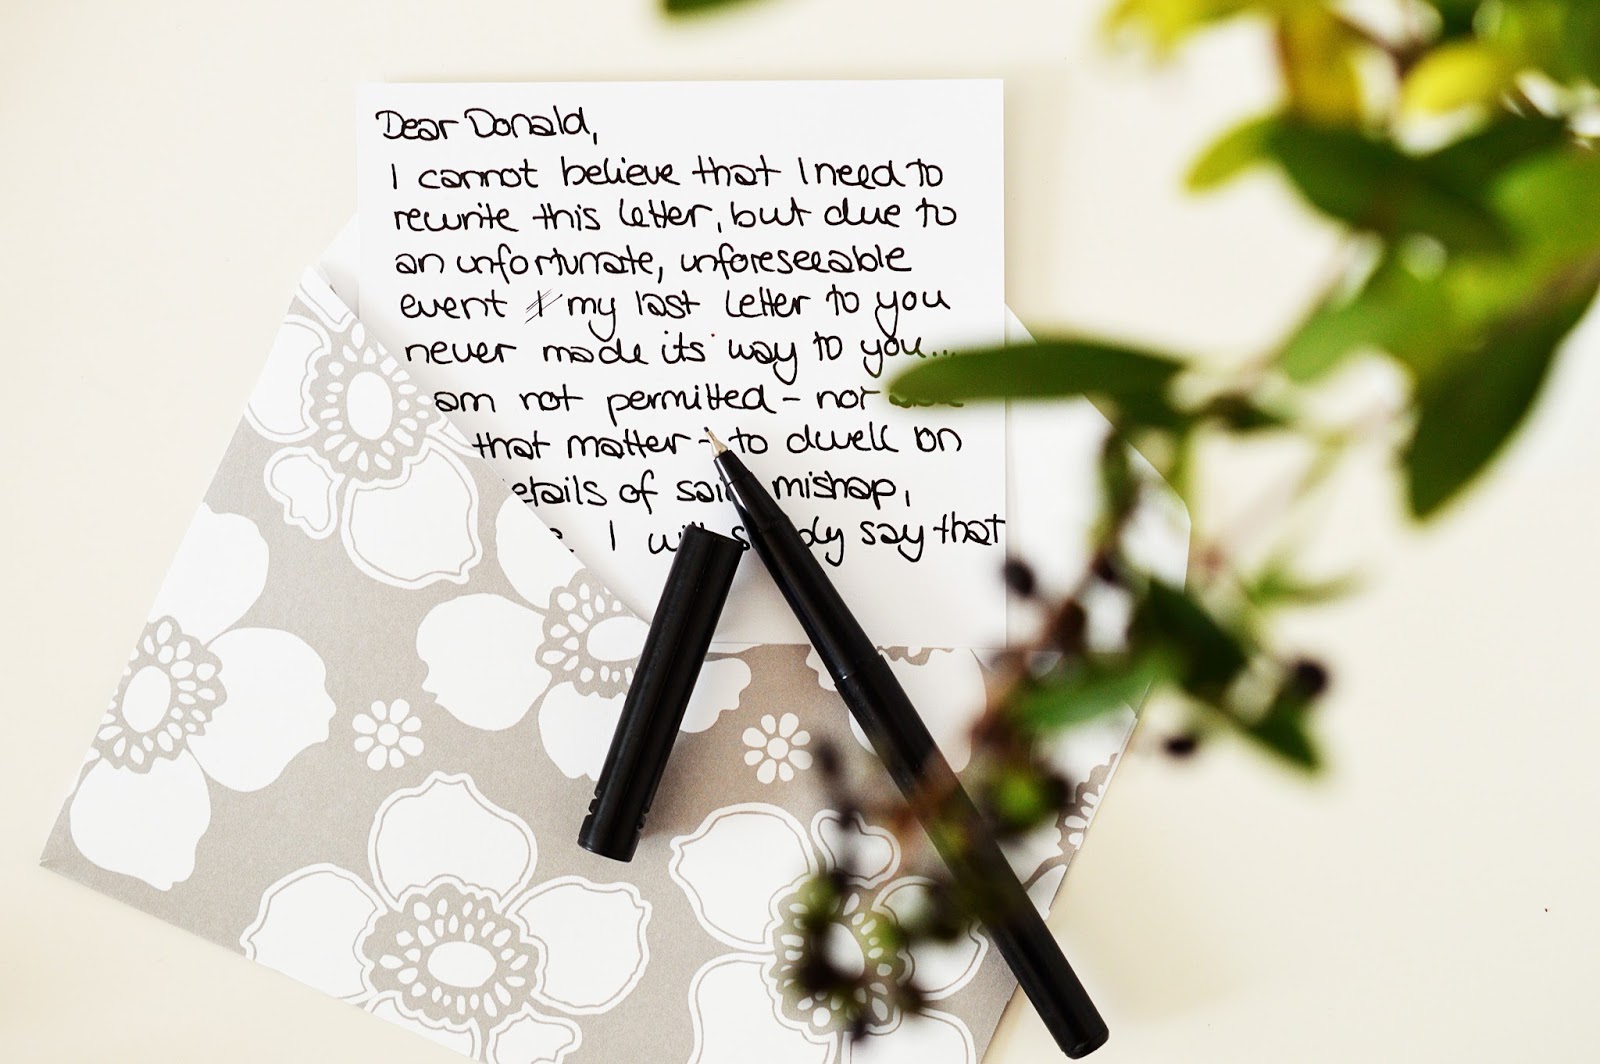 Dear Donald,
I cannot believe that I need to
rewrite this letter, but due to
an unfortunate, unforeseeable
event my last letter to you
never made its way to you...
am not permitted - nor
that matter - to dwell on
etails of said mishap,
I say that